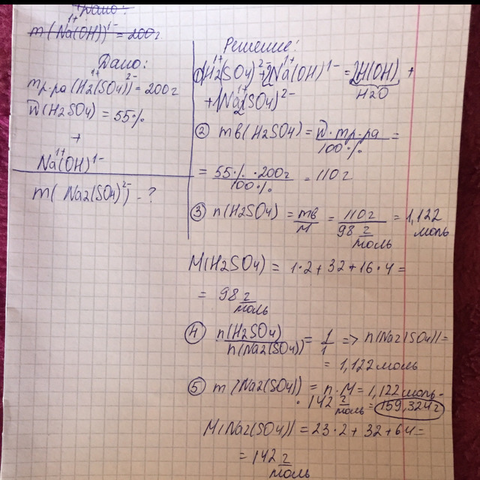 Дано:
m(Na(OH))¹⁻ = 200г
Дано:
mр.ра(H₂(SO₄))²⁻ = 200г
W(H₂SO₄) = 55%
+
Na¹⁺(OH)¹⁻
m(Na₂(SO₄)²⁻) - ?
Решение:
① 1H₂¹⁺(SO₄)²⁻ + 2Na¹⁺(OH)¹⁻ = 2H(OH) +
H₂O
+ 1Na₂¹⁺(SO₄)²⁻
② mв(H₂SO₄) = W · mр.ра / 100% =
= 55% · 200г / 100% = 110г
③ n(H₂SO₄) = mв / M = 110г / 98 г/моль = 1,122 моль
M(H₂SO₄) = 1·2 + 32 + 16·4 =
= 98 г/моль
④ n(H₂SO₄) / n(Na₂(SO₄)) = 1/1 => n(Na₂(SO₄)) =
= 1,122 моль
⑤ m(Na₂(SO₄)) = n · M = 1,122 моль ·
· 142 г/моль = 159,324г
M(Na₂(SO₄)) = 23·2 + 32 + 64 =
= 142 г/моль